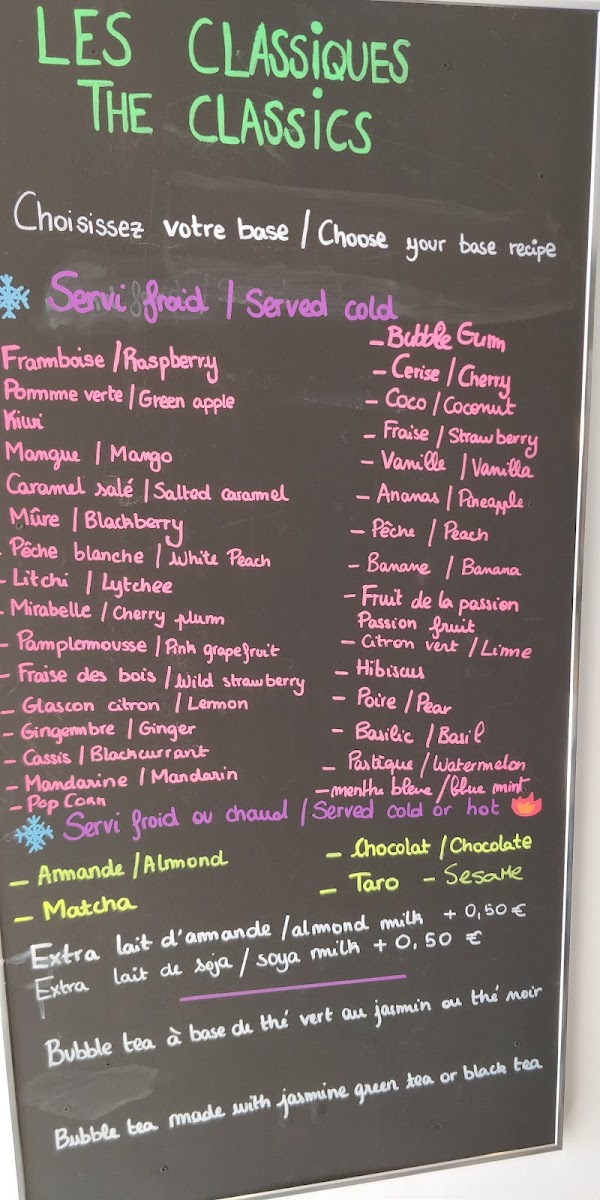 LES CLASSiQUES
THE CLASSiCS
Choisissez votre base / Choose your base recipe
Servi froid / Served cold
Framboise / Raspberry
Pomme verte / Green apple
Kiwi
Mangue / Mango
Caramel salé / Salted caramel
Mûre / Blackberry
- Pêche blanche / White Peach
- Litchi / Lytchee
- Mirabelle / Cherry plum
- Pamplemousse / Pink grapefruit
- Fraise des bois / Wild strawberry
- Glascon citron / Lemon
- Gingembre / Ginger
- Cassis / Blackcurrant
- Mandarine / Mandarin
- Pop Corn
- Bubble Gum
- Cerise / Cherry
- Coco / Coconut
- Fraise / Strawberry
- Vanille / Vanilla
- Ananas / Pineapple
- Pêche / Peach
- Banane / Banana
- Fruit de la passion
Passion fruit
- Citron vert / Lime
- Hibiscus
- Poire / Pear
- Basilic / Basil
- Pastèque / Watermelon
- menthe bleue / blue mint
Servi froid ou chaud / Served cold or hot
- Amande / Almond
- Matcha
- Chocolat / Chocolate
- Taro - Sesame
Extra lait d'amande / almond milk + 0,50 €
Extra lait de soja / soya milk + 0,50 €
Bubble tea à base de thé vert au jasmin ou thé noir
Bubble tea made with jasmine green tea or black tea